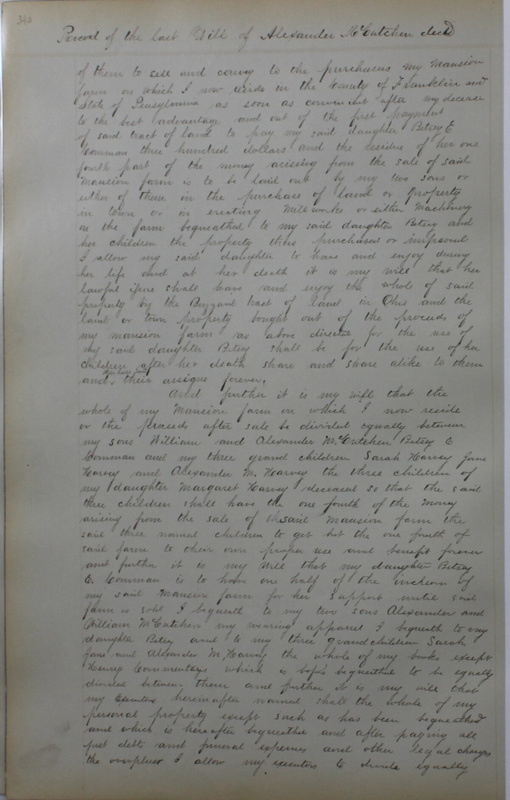 Record of the last Will of Alexander McCutchen decd
of them to sell and convey to the purchases my Mansion
farm on which I now reside in the County of Franklin and
State of Pensylvania as soon as convenient after my decease
to the best advantage and out of the first payment
of said tract of land to pay my said daughter Betsy E
Comman three hundred dollars and the residue of her one
fourth part of the money arissing from the sale of said
Mansion farm is to be laid out by my two sons or
either of these in the purchase of land or property
in town or in erecting Millworks or either Machinery
on the farm bequeathed to my said daughter Betsy and
her children the property thus purchased or improved
I allow my said daughter to have and enjoy during
her life and at her death it is my will that her
lawful issue shall have and enjoy the whole of said
property by the tract of land in Ohio and the
land or town property bought out of the proceeds of
my mansion farm as above directed for the use of
my said daughter Betsy shall be for the use of her
children after her death share and share alike to them
and their assigns forever.
And further it is my will that the
whole of my Mansion farm on which I now reside
or the proceeds after sale be divided equally between
my sons William and Alexander McCutchen Betsy E
Comman and my three grand children Sarah Harvey Jane
Harvey and Alexander M. Harvey the three children of
my daughter Margaret Harvey deceased so that the said
three children shall have the one fourth of the money
arising from the sale of the said Mansion farm the
said three named children to get but the one fourth of
said farm to their own proper use and benefit forever
and further it is my will that my daughter Betsy
E Comman is to have one half of the of
my said Mansion farm for her support until said
farm is sold I bequeath to my two sons Alexander and
William McCutchen my wearing apparel I bequeath to my
daughter Betsy and to my three grandchildren Sarah
Jane and Alexander M. Harvey the whole of my books except
Henrys Commentary which is before bequeathed to be equally
divided between them and further it is my will that
my Executors hereinafter named shall the whole of my
personal property except such as has been bequeathed
and which is hereafter bequeathed and after paying all
just debts and funeral expenses and other legal charges
the overpluss I allow my executors to divide equally